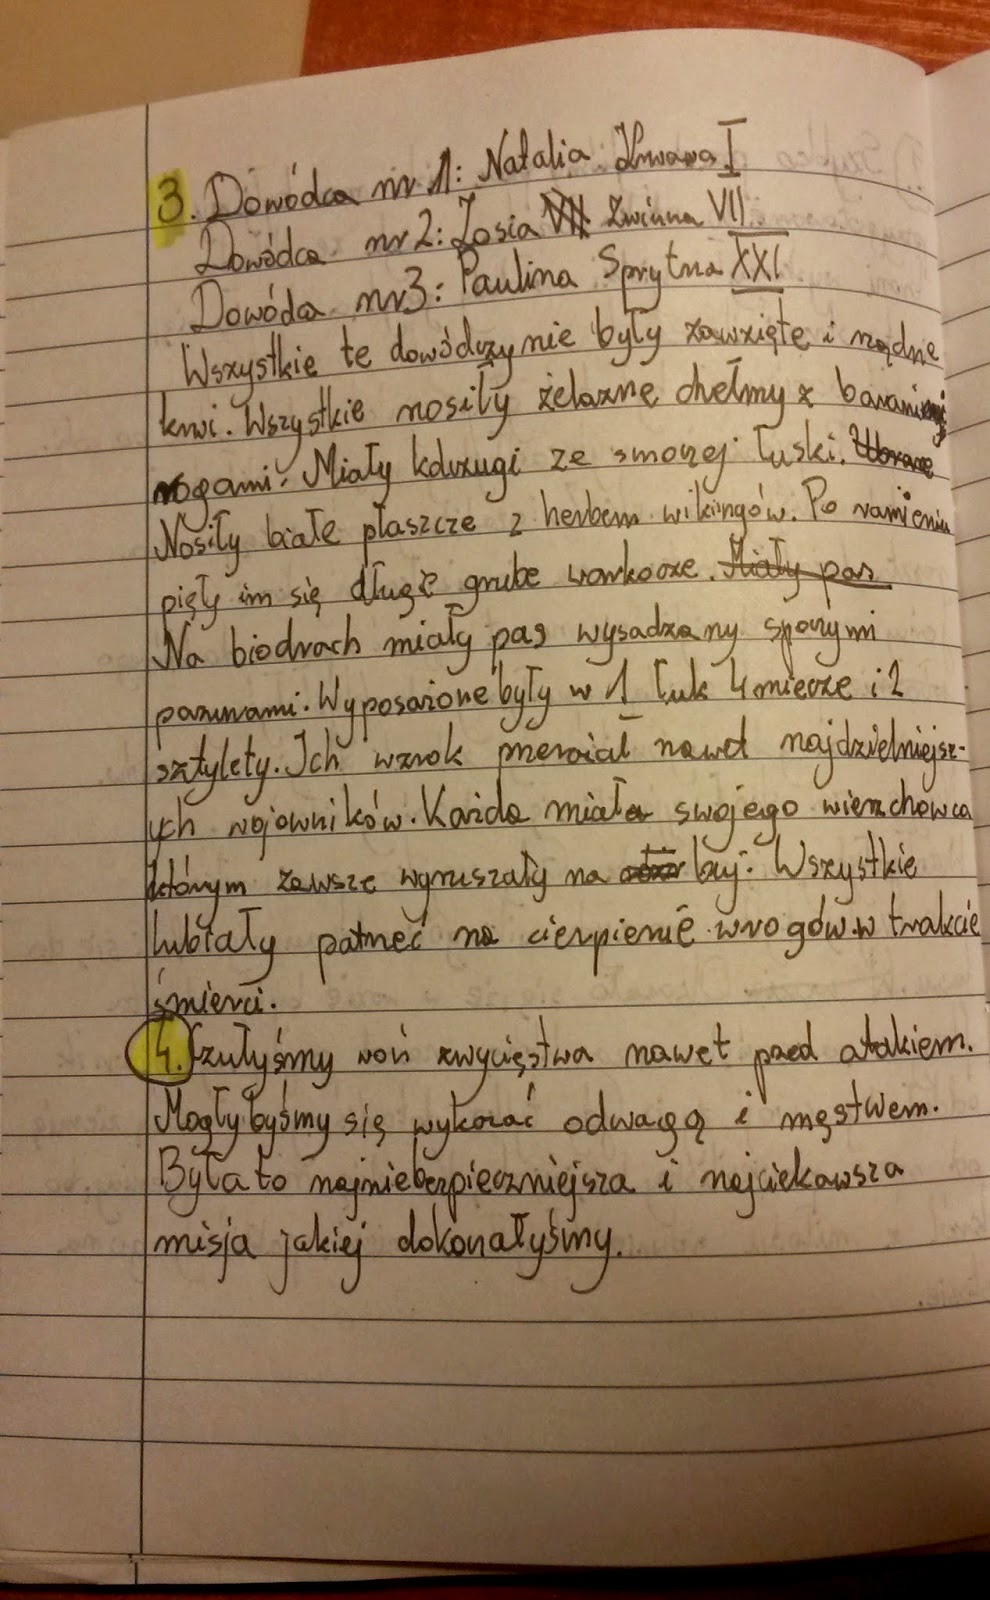 3. Dowódca nr 1: Natalia Krwawa I
Dowódca nr 2: Zosia VII Zwinna VII
Dowódca nr 3: Paulina Sprytna XXI
Wszystkie te dowódczynie były zawzięte i rządne
krwi. Wszystkie nosiły żelazne chełmy z baranimi
rogami. Miały kolczugi ze smoczej łuski. Ubrane
Nosiły białe płaszcze z herbem wikingów. Po ramieniu
pięły im się długie grube warkocze. Miały pas
Na biodrach miały pas wysadzany sporymi
pazurami. Wyposażone były w 1 łuk 4 miecze i 2
sztylety. Ich wzrok przerażał nawet najdzielniejsz-
ych wojowników. Każda miała swojego wierzchowca
którym zawsze wyruszały na bój. Wszystkie
lubiały patrzeć na cierpienie wrogów w trakcie
śmierci.
4. Czułyśmy woń zwycięstwa nawet przed atakiem.
Mogłybyśmy się wykazać odwagą i męstwem.
Była to najniebezpieczniejsza i najciekawsza
misja jakiej dokonałyśmy.